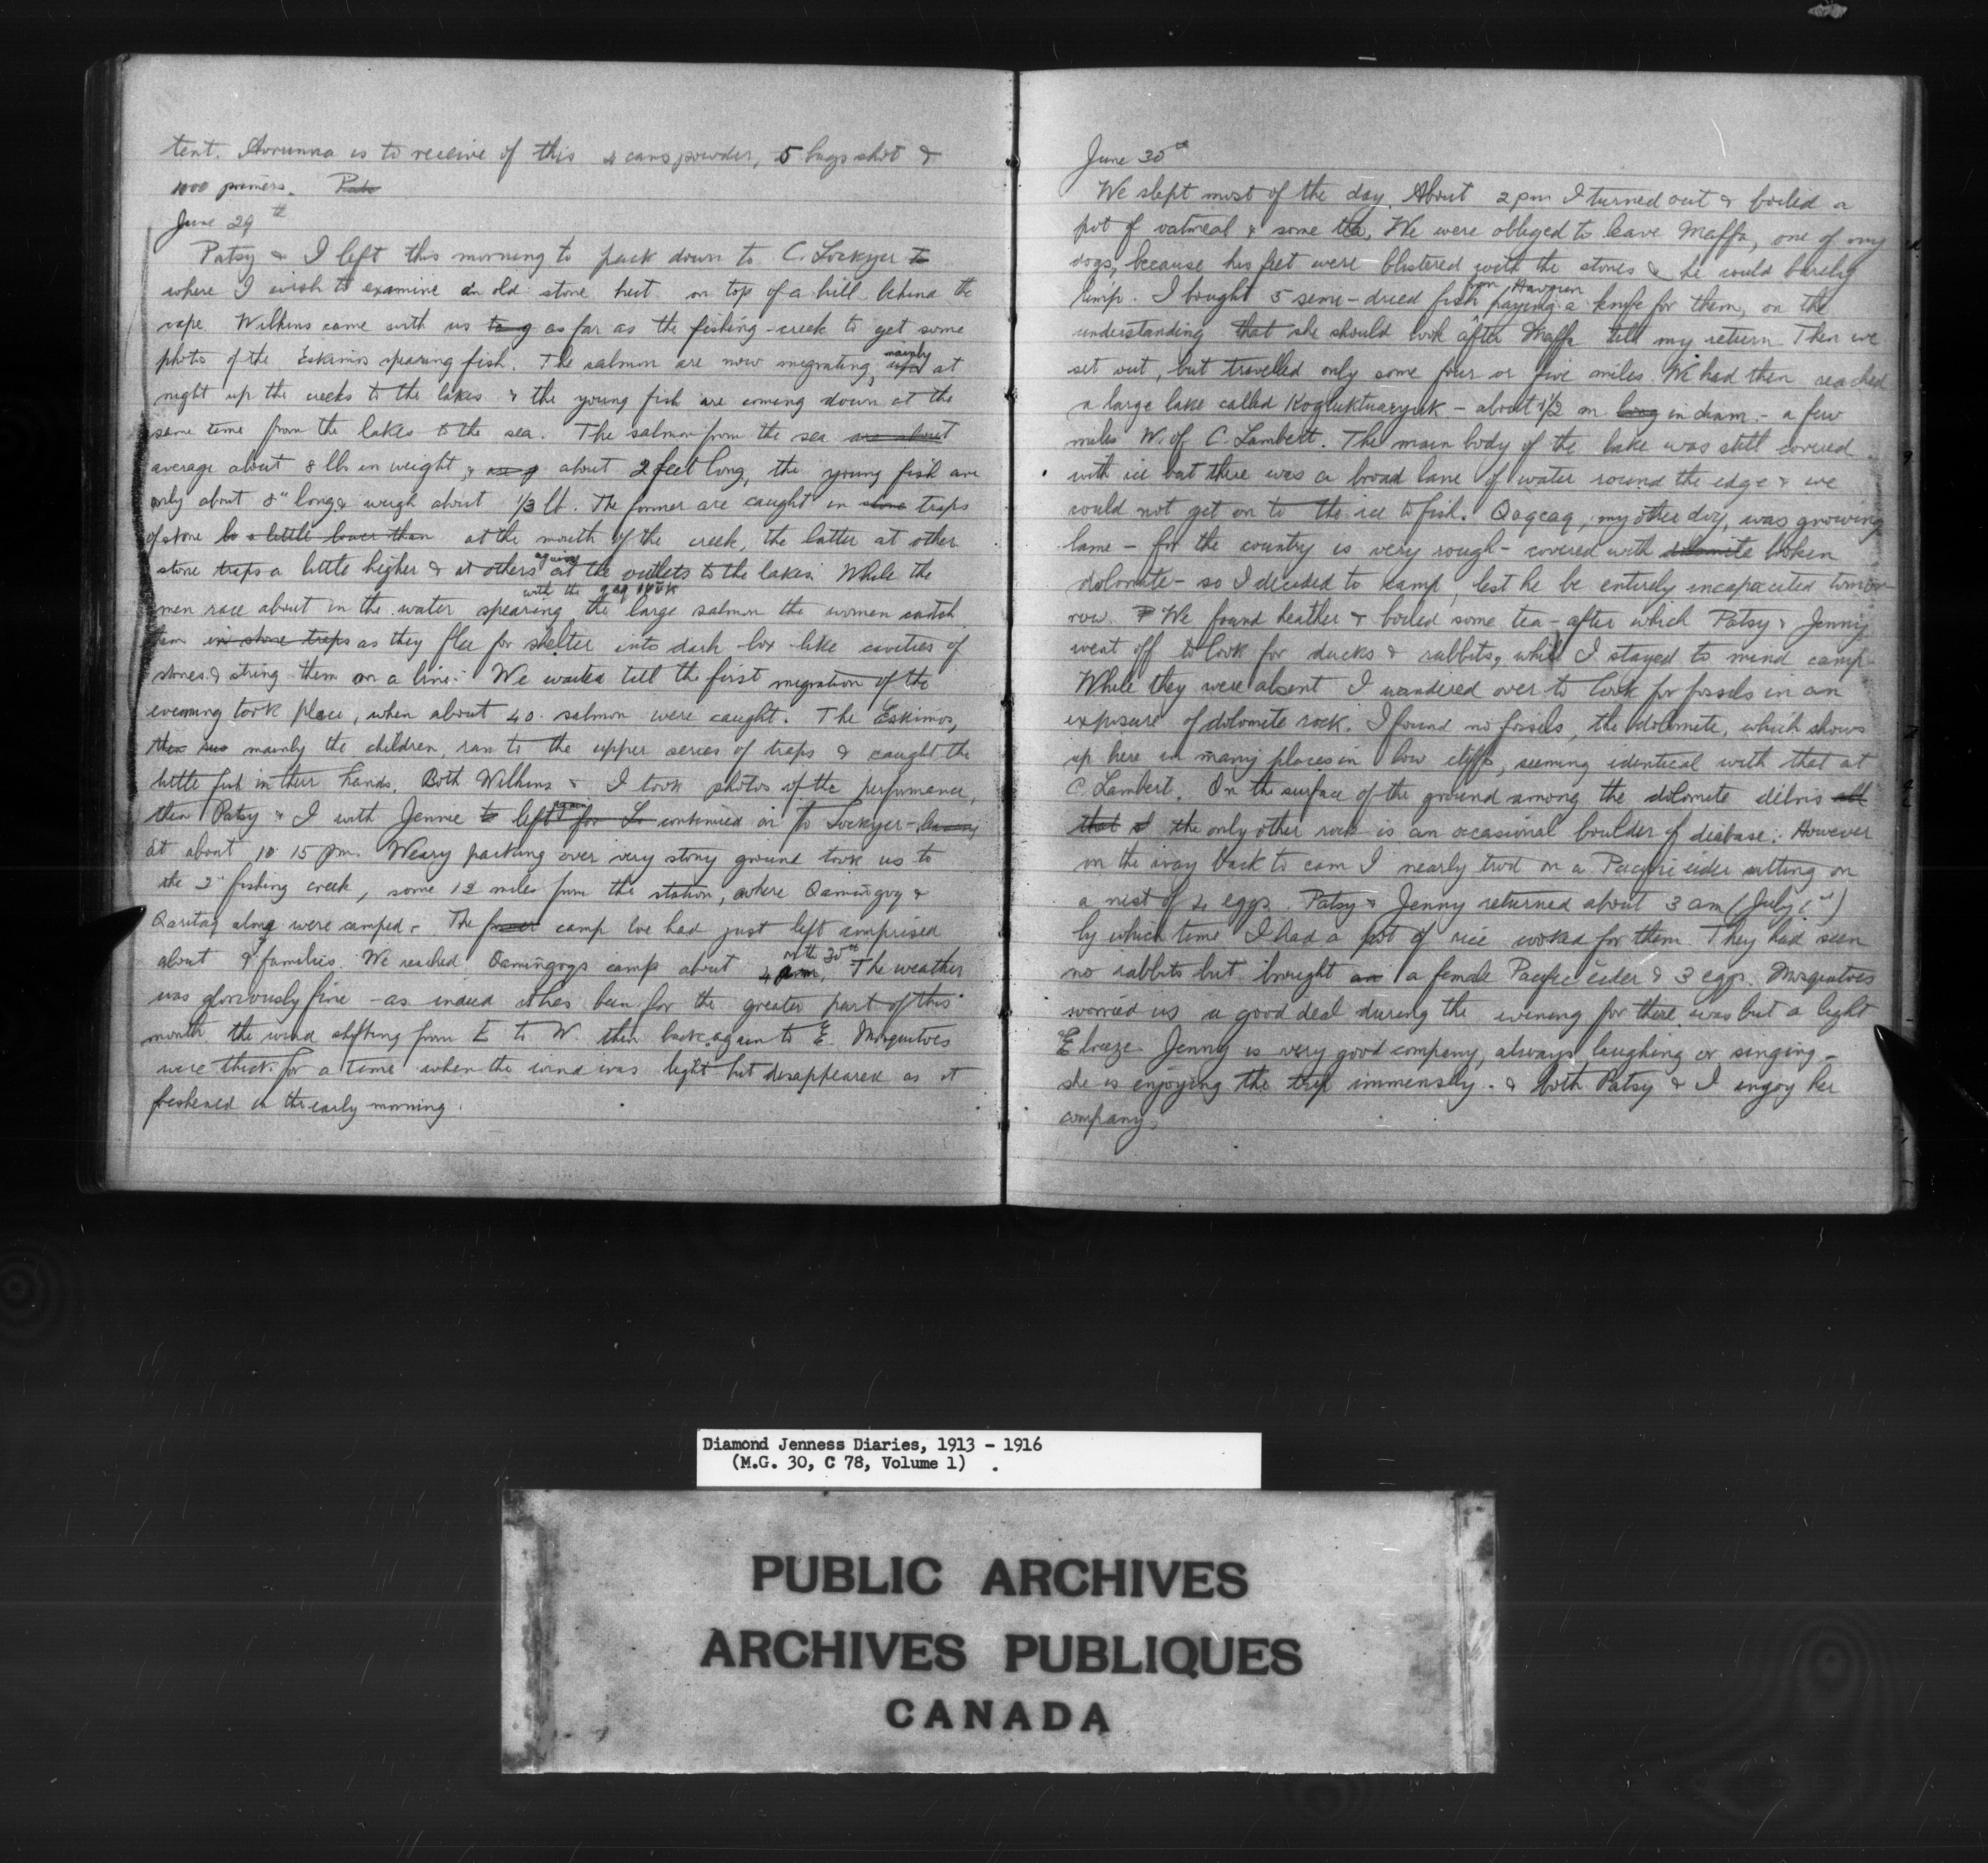 tent. Avrunna is to receive of this 4 cans powder, 5 bags shot &
1000 primers. Pats
June 29th
Patsy & I left this morning to pack down to C. Lockyer to
where I wish to examine an old stone hut on top of a hill behind the
cape. Wilkins came with us to g as far as the fishing-creek to get some
photos of the Eskimos spearing fish. The salmon are now migrating, mainly at
night up the creeks to the lakes & the young fish are coming down at the
same time from the lakes to the sea. The salmon from the sea are about
average about 8 lbs in weight, & are g about 2 feet long, the young fish are
only about 8" long & weigh about 1/3 lb. The former are caught in stone traps
of stone to a little lower than at the mouth of the creek, the latter at other
stone traps a little higher & at others again at the outlets to the lakes. While the
men race about in the water spearing with the qaqivok the large salmon the women catch
them in stone traps as they flee for shelter into dark box-like cavities of
stones & string them on a line. We waited till the first migration of the
evening took place, when about 40 salmon were caught. The Eskimos,
mainly the children, ran to the upper series of traps & caught the
little fish in their hands. Both Wilkins & I took photos of the performance,
then Patsy & I with Jennie to left again for Lo continued on to Lockyer - leaving
at about 10 15 pm. Weary packing over very stony ground took us to
the 2nd fishing creek, some 12 miles from the station, where Qamiñgoq &
Qaritaq along were camped. The camp we had just left comprised
about 9 families. We reached Qamiñgoq's camp about 4 am on the 30th. The weather
was gloriously fine - as indeed it has been for the greater part of this
month the wind shifting from E to W. then back again to E. Mosquitoes
were thick for a time when the wind was light but disappeared as it
freshened in the early morning.
June 30th
We slept most of the day. About 2 pm I turned out & boiled a
pot of oatmeal & some tea. We were obliged to leave Maffa, one of my
dogs, because his feet were blistered with the stones & he could barely
limp. I bought 5 semi-dried fish from Havgun paying a knife for them, on the
understanding that she should look after Maffa till my return. Then we
set out, but travelled only some four or five miles. We had then reached
a large lake called Kogluktuaryuk - about 1½ m long in diam. - a few
miles W. of C. Lambert. The main body of the lake was still covered
with ice but there was a broad lane of water round the edge & we
could not get on to the ice to fish. Qaqcaq, my other dog, was growing
lame - for the country is very rough - covered with dolomite broken
dolomite - so I decided to camp, lest he be entirely incapacited tomor-
row. We found heather & boiled some tea - after which Patsy & Jenny
went off to look for ducks & rabbits, while I stayed to mind camp.
While they were absent I wandered over to look for fossils in an
exposure of dolomite rock. I found no fossils, the dolomite, which shows
up here in many places in low cliffs, seeming identical with that at
C. Lambert. On the surface of the ground among the dolomite débris all
that I the only other rock is an occasional boulder of diabase. However
on the way back to cam I nearly trod on a Pacific eider sitting on
a nest of 4 eggs. Patsy & Jenny returned about 3 am (July 1st)
by which time I had a pot of rice cooked for them. They had seen
no rabbits but brought an a female Pacific eider & 3 eggs. Mosquitoes
worried us a good deal during the evening for there was but a light
E breeze. Jenny is very good company, always laughing or singing -
she is enjoying the trip immensely - & both Patsy & I enjoy her
company.
Diamond Jenness Diaries, 1913 - 1916
(M.G. 30, C 78, Volume 1)
PUBLIC ARCHIVES
ARCHIVES PUBLIQUES
CANADA